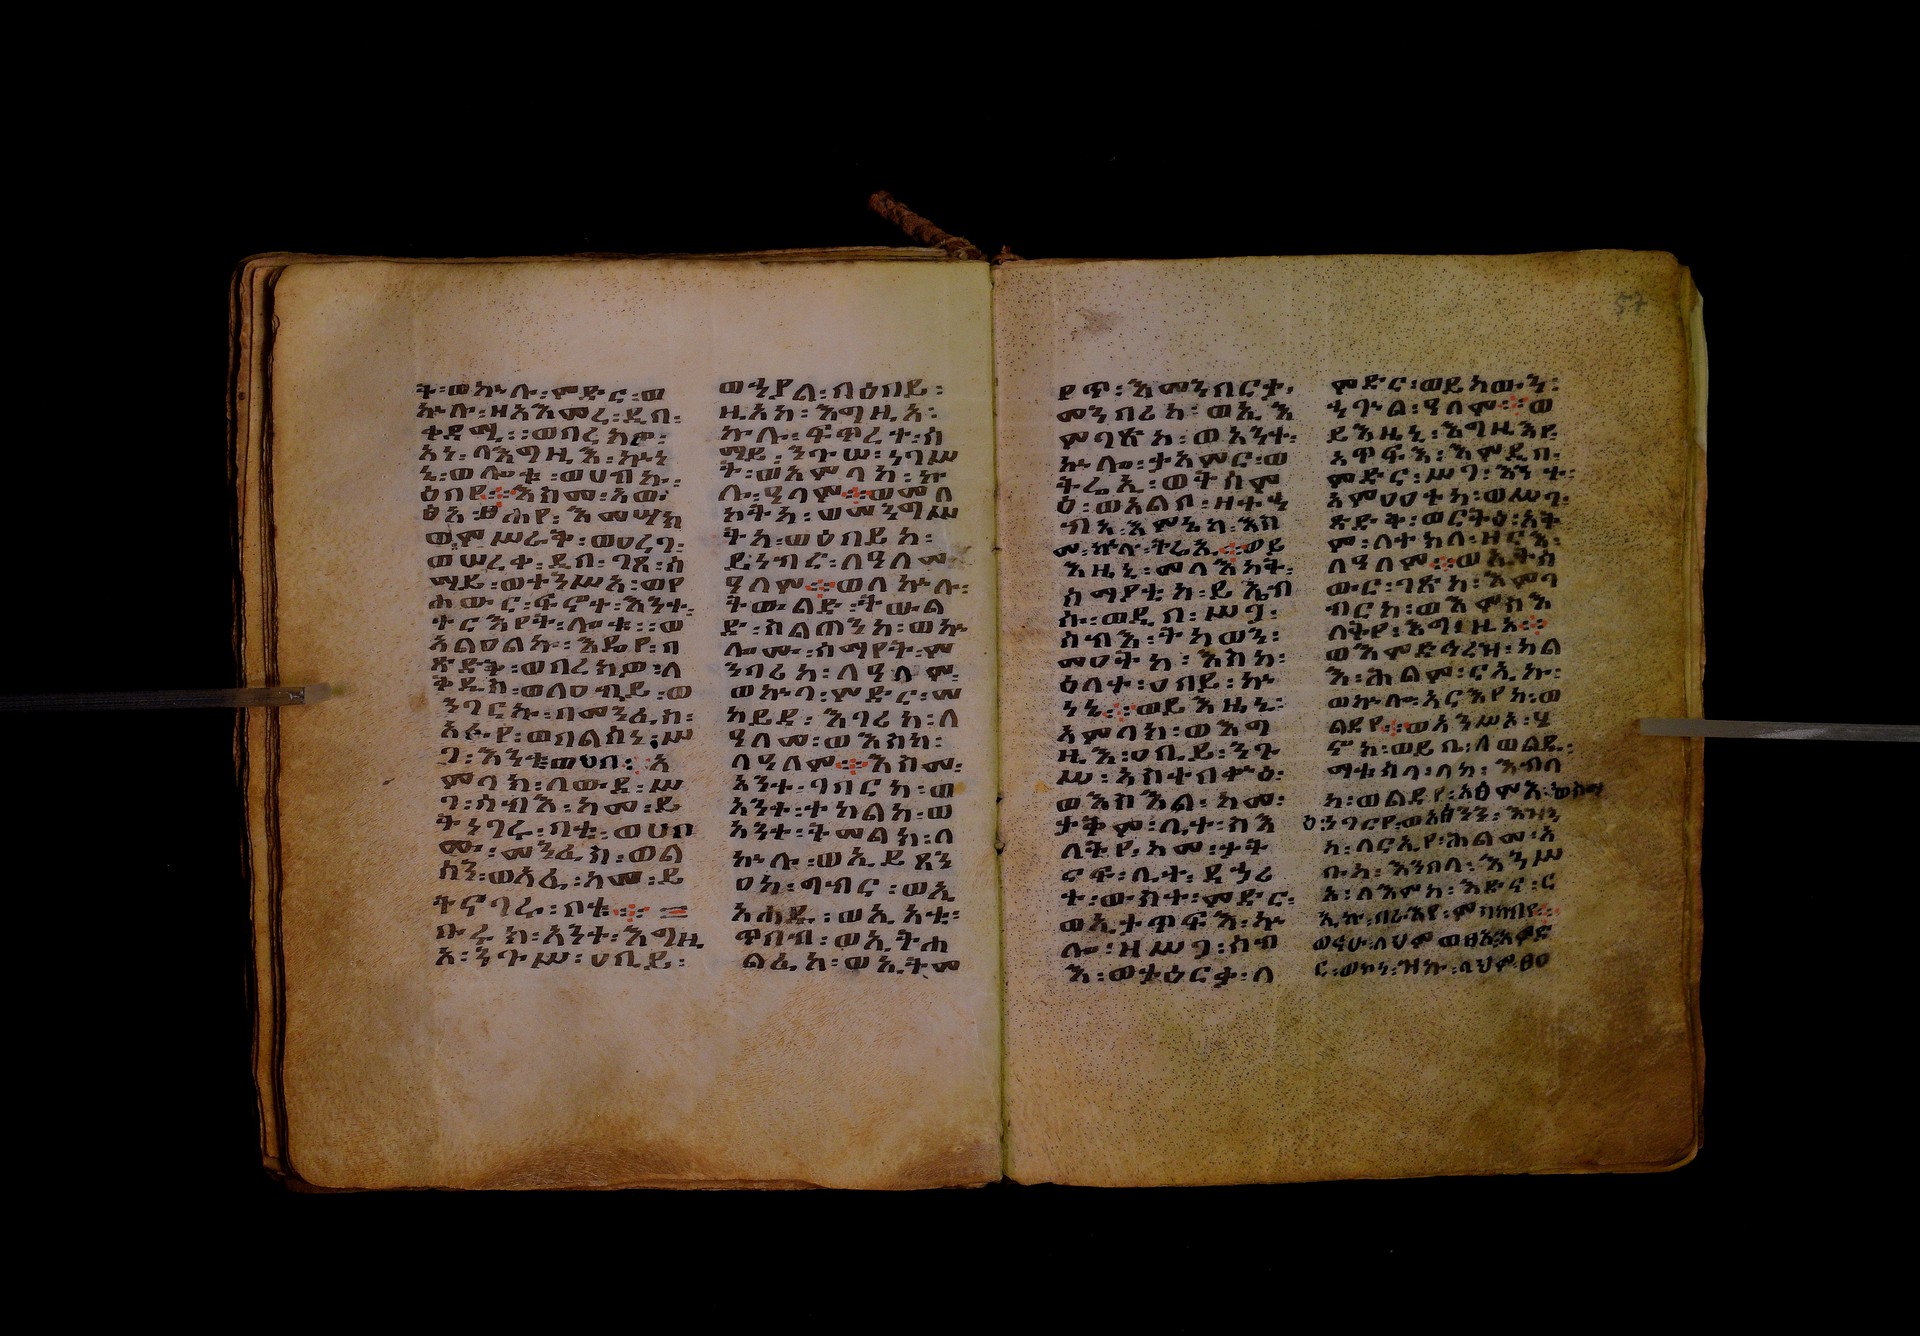 ት፡ወኵሉ፡ምድር፡ወ
ኵሉ፡ዘአእመረ፡ደቡ፡
ቀዳሚ፡፡ወባረክዎ፡
አነ፡ለእግዚአ፡ኵነ
ኔ፡ወሎቱ፡ወሀብኩ፡
ዕበየ፡፡እስመ፡አው
ፅአ፡ፀሐየ፡እመሣክ
ወ፡ምሥራቅ፡ወዐረገ፡
ወሠረቀ፡ደቡ፡ገጸ፡ሰ
ማይ፡ወተንሥአ፡ወየ
ሐውር፡ፍኖተ፡እንተ፡
ተርእየት፡ሎቱ፡፡ወ
አልዐልኩ፡እዴየ፡በ
ጽድቅ፡ወባረክዎ፡ለ
ቅዱስ፡ወለዐቢይ፡ወ
ነገርኩ፡በመንፈሰ፡
አፉየ፡ወበልሳነ፡ሥ
ጋ፡እንተ፡ወሀበ፡፡አ
ምላክ፡ለውሉደ፡ሥ
ጋ፡ሰብእ፡ከመ፡ይ
ትነገሩ፡ቦቱ፡ወሀቦ
ሙ፡መንፈሰ፡ወል
ሳነ፡ወአፈ፡ከመ፡ይ
ትናገሩ፡ቦቱ፡፡
ቡሩክ፡አንተ፡እግዚ
አ፡ንጉሥ፡ዐቢይ፡
ወኃያል፡በዕበይ፡
ዚአከ፡እግዚአ፡
ኵሉ፡ፍጥረተ፡ሰ
ማይ፡ንጉሠ፡ነገሥ
ት፡ወአምላከ፡ኵ
ሉ፡ዓለም፡፡ወመለ
ኮትከ፡ወመንግሥ
ትከ፡ወዕበይከ፡
ይነብር፡ለዓለመ፡
ዓለም፡፡ወለኵሉ፡
ትውልድ፡ትውል
ድ፡ስልጠንከ፡ወኵ
ሎሙ፡ሰማየት፡መ
ንበሪከ፡ለዓለም፡
ወኵላ፡ምድር፡መ
ከይደ፡እገሪከ፡ለ
ዓለመ፡ወእስከ፡
ለዓለም፡፡እስመ፡
አንተ፡ገበርከ፡ወ
አንተ፡ተከልከ፡ወ
አንተ፡ትመልክ፡ለ
ኵሉ፡ወኢይጸን
ዐከ፡ግብር፡ወኢ
አሐዱ፡ወኢአቲ፡
ጥበብ፡ወኢትሐ
ልፈከ፡ወኢትመ
የጥ፡እመንበርታ፡
መንበሪከ፡ወኢእ
ምገጽከ፡ወአንተ፡
ኵሎ፡ታአምር፡ወ
ትሬኢ፡ወትሰም
ዕ፡ወአልቦ፡ዘተኃ
ብአ፡እምኔከ፡እስ
መ፡ኵሉ፡ትሬኢ፡፡ወይ
እዜኒ፡መላእክት፡
ሰማያቲከ፡ይኤብ
ሱ፡ወዲበ፡ሥጋ፡
ሰብእ፡ትከውን፡
መዐትከ፡እስከ፡
ዕለተ፡ዐበይ፡ኵ
ነኔ፡፡ወይእዜኒ፡
አምላክ፡ወእግ
ዚእ፡ዐቢይ፡ንጉ
ሥ፡አስተበቍዕ፡
ወእስእል፡ከመ፡
ታቅም፡ሊተ፡ስእ
ለትየ፡ከመ፡ታት
ርፍ፡ሊተ፡ደኃሪ
ተ፡ውስተ፡ምድር፡
ወኢታጥፍእ፡ኵ
ሎ፡ዘሥጋ፡ሰብ
እ፡ወተዕርቃ፡ለ
ምድር፡ወይከውን፡
ኃጕል፡ዓለም፡፡ወ
ይእዜኒ፡እግዚእየ፡
አጥፍእ፡እምደበ፡
ምድር፡ሥጋ፡እንተ፡
አምዐዐተከ፡ወሥጋ፡
ጽድቅ፡ወርትዕ፡አቅ
ም፡ለተክለ፡ዘርእ፡
ለዓለም፡፡ወኢትሰ
ውር፡ገጽከ፡እምገ
ብርከ፡ወእምስእ
ለትየ፡እግዚአ፡፡
ወእምድኅረዝ፡ካል
እ፡ሕልም፡ርኢኩ፡
ወኵሎ፡አርእየከ፡ወ
ልድየ፡፡ወአንሥአ፡ሄ
ኖክ፡ወይቤ፡ለወልዱ፡
ማቱሳላ፡ለከ፡እብለ
ከ፡ወልድየ፡አፅምእ፡ወስማ
ዕ፡ነገርየ፡ወአፅንን፡እዝነ
ከ፡ለርእየ፡ሕልመ፡አ
ቡከ፡እንበለ፡እንሥ
አ፡ለእምከ፡እድና፡ር
ኢኩ፡በራእየ፡ምስካብየ፡፡